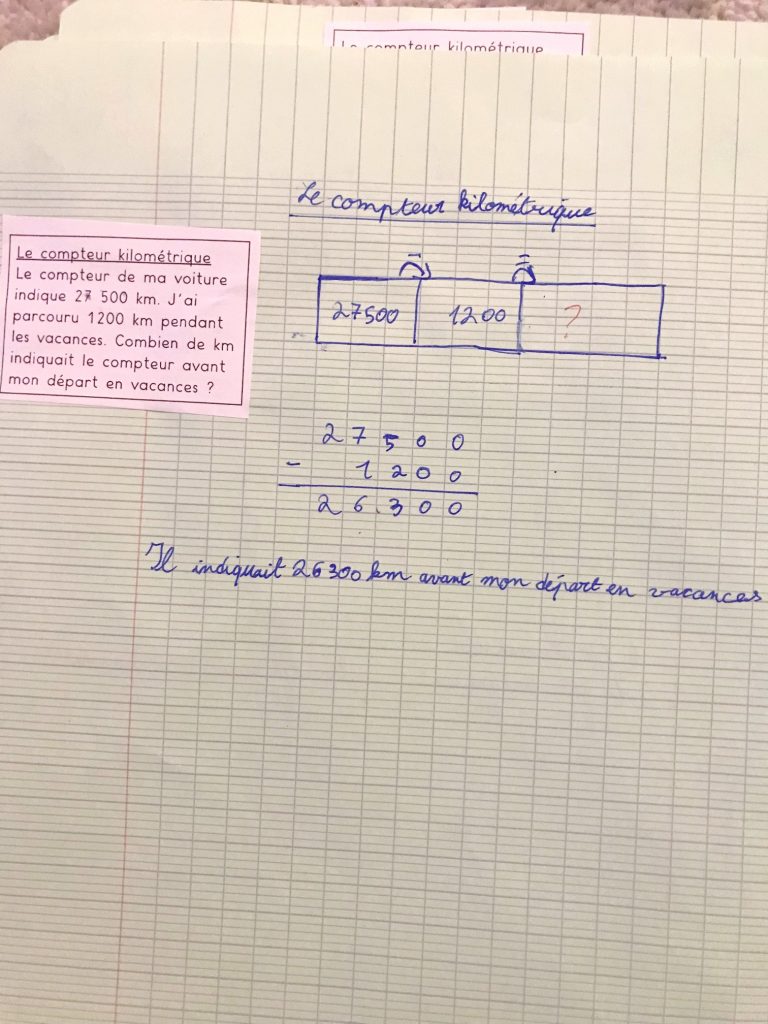 Le compteur kilométrique
Le compteur kilométrique
Le compteur kilométrique
Le compteur de ma voiture
indique 27 500 km. J'ai
parcouru 1200 km pendant
les vacances. Combien de km
indiquait le compteur avant
mon départ en vacances ?
- =
27500 1200 ?
2 7 5 0 0
- 1 2 0 0
2 6 . 3 0 0
Il indiquait 26300 km avant mon départ en vacances